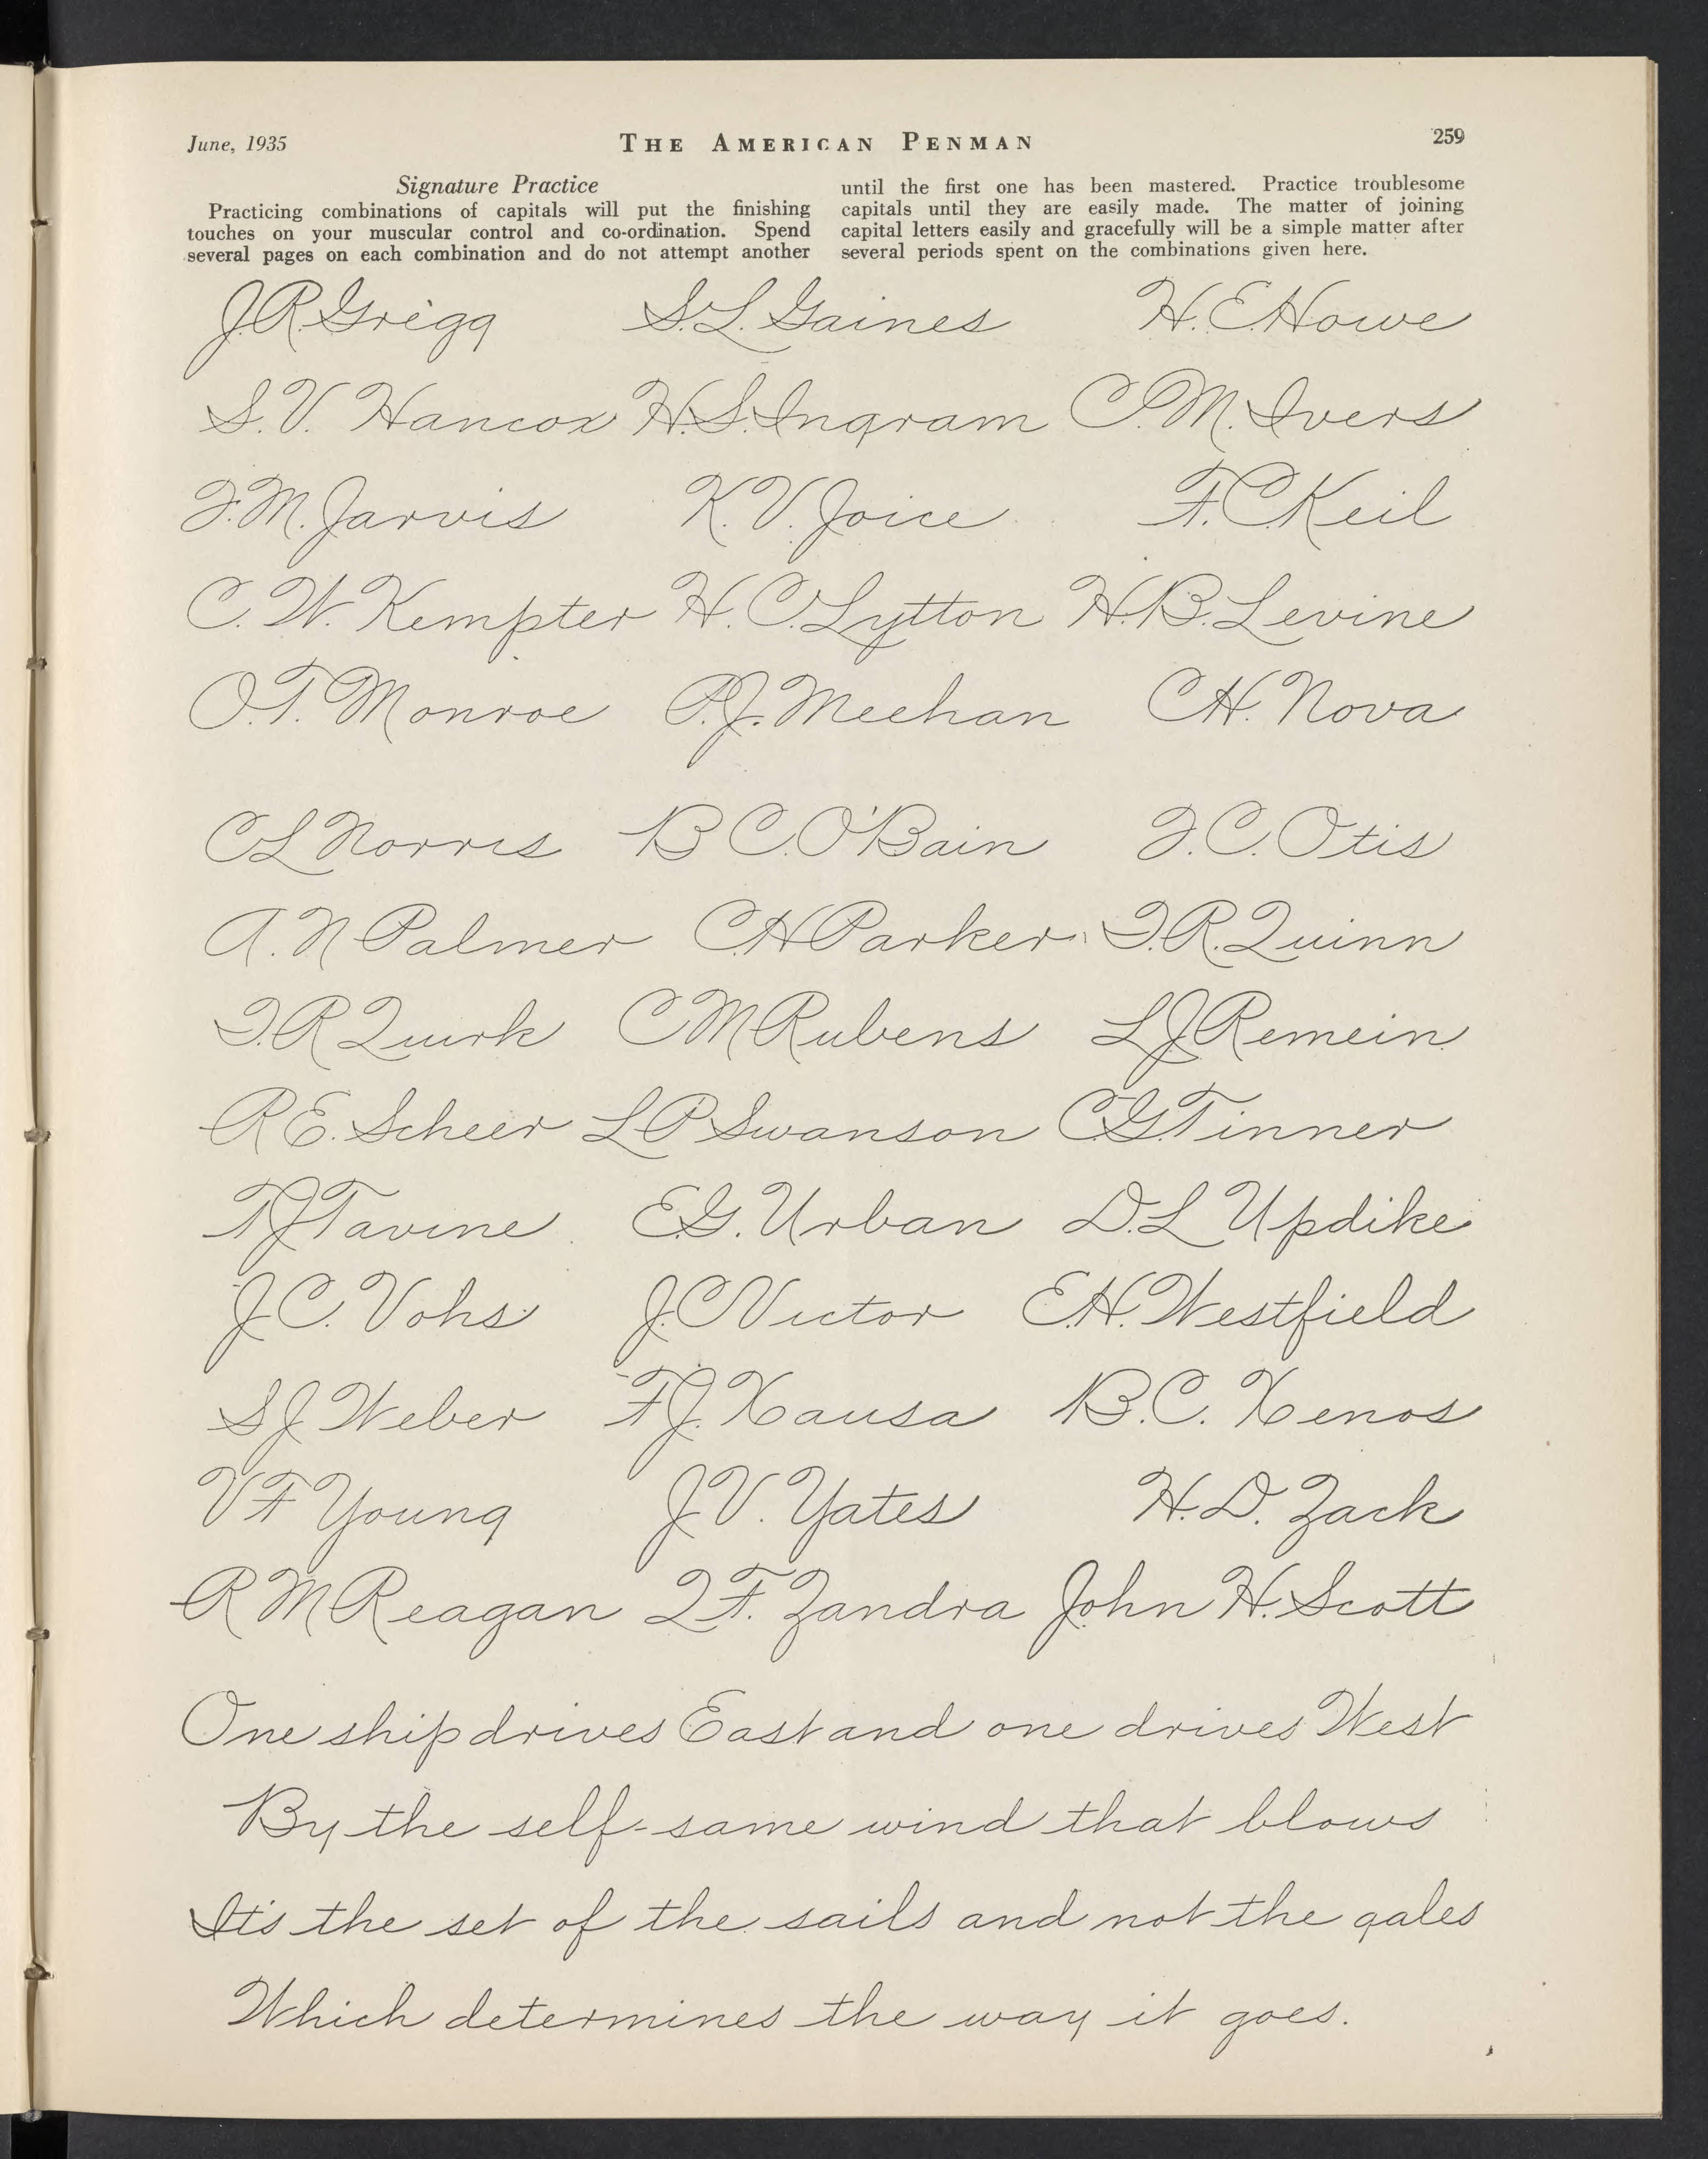 June, 1935 THE AMERICAN PENMAN 259
Signature Practice
Practicing combinations of capitals will put the finishing
touches on your muscular control and co-ordination. Spend
several pages on each combination and do not attempt another
until the first one has been mastered. Practice troublesome
capitals until they are easily made. The matter of joining
capital letters easily and gracefully will be a simple matter after
several periods spent on the combinations given here.
J.R. Grigg S.L. Gaines H.E. Howe
S.V. Hancox H.S. Ingram C.M. Ivers
F.M. Jarvis K.V. Joice F.C. Keil
C.W. Kempter H.C. Lytton H.B. Levine
O.T. Monroe P.J. Meehan C.H. Nova
C L Norris B C. O'Bain F.C. Otis
A.N Palmer C.H Parker I.R. Quinn
I.R Quirk C M Rubens L J Remein
R E. Scheer L P Swanson C.G. Tinner
T J Tavine E.G. Urban D.L Updike
J C. Vohs J.C Victor E.H. Westfield
S J Weber F J. Xausa B.C. Xenos
V F Young J V. Yates H.D. Zack
R M Reagan Q F. Zandra John H. Scott
One ship drives East and one drives West
By the self-same wind that blows
It's the set of the sails and not the gales
Which determines the way it goes.